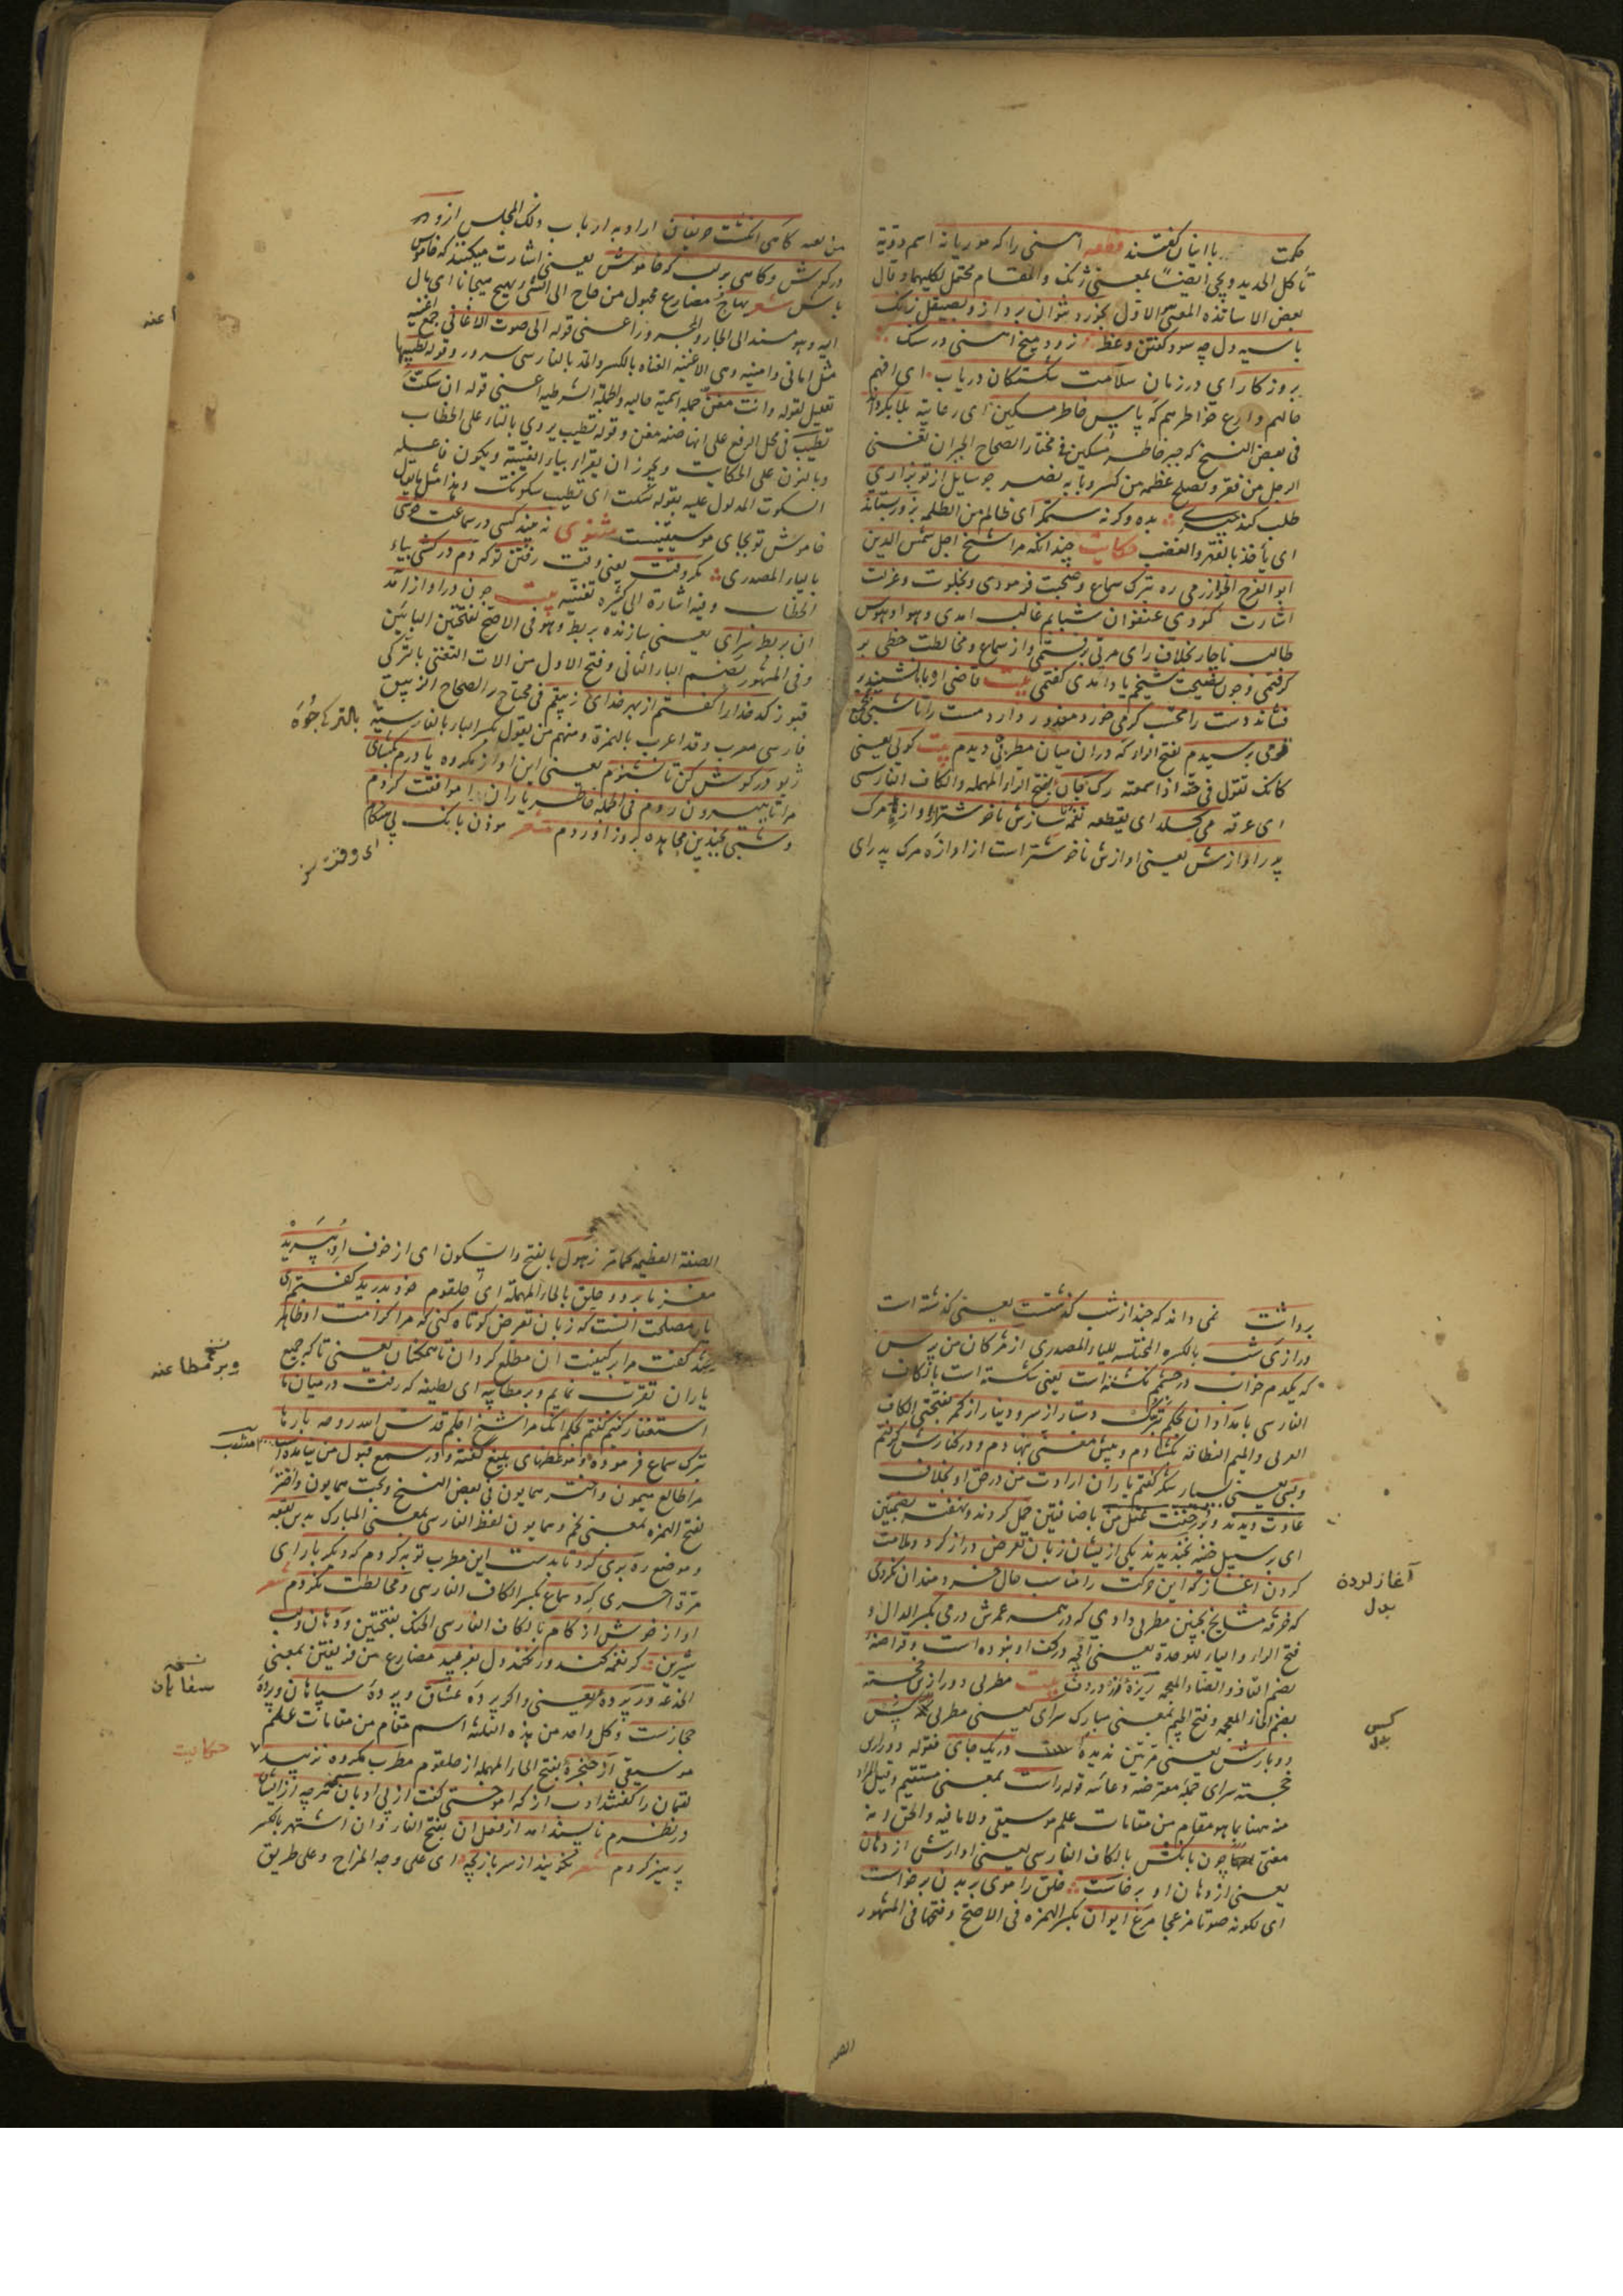 حکمت با اینان گفتند قطعه اهنی را که موریانه اسم دویبة
تأکل الحدید ویجی ایضاً بمعنی ژنک والمقام محتمل لکلیهما وقال
بعض الاساتذه المعنی الاول بخورد نتوان برد ازو بصیقل زنک
با سیه دل چه سود گفتن وعظ نرود میخ اهنی در سنک
بروزکار ای در زمان سلامت شکستکان دریاب ای افهم
حالهم وارع خواطرهم که پاس خاطر مسکین ای رعایته بلا بکرداند
فی بعض النسخ که جبر خاطر مسکین فی مختار الصحاح الجبر ان تغنی
الرجل من فقر وتصلح عظمه من کسر وبابه نصر چو سایل از تو بزاری
طلب کند چیزی بده وکرنه ستمکر ای ظالم من الظلمه بزور بستاند
ای یأخذ بالقهر والغضب حکایت چندانکه مرا شیخ اجل شمس الدین
ابو الفرج الجوازرمی ره بترک سماع وصحبت فرمودی وبخلوت وعزلت
اشارت کردی عنفوان شبابم غالب امدی وهوا وهوس
طالب ناچار بخلاف رای مربی برفتمی واز سماع ومخالطت حظی بر
کرفتمی وچون نصیحت شیخم یاد امدی کفتمی بیت قاضی ار با ما نشیند بر
فشاند دست را محتسب کر می خورد معذور دارد مست را تا شبی بمجمع
قومی برسیدم بفتح الراء که در ان میان مطربی دیدم بیت کویی یعنی
کانک تقول فی حقه اذا سمعته رک جان بفتح الراء المهمله والکاف الفارسی
ای عرقه می کسلد ای یقطعه نغمه ناسازش ناخوشتر از اوازه مرک
پدر اوازش یعنی اوازش ناخوشتر است از اوازه مرک پدر ای
من نعیه کاهی انکشت حریفان اراد به ارباب ذلک المجلس ازو در
درکوش وکاهی بر لب که خاموش یعنی اشارت میکنند که خاموش
باش شعر یهاج مضارع مجهول من هاج الی الشیء یهیج هیجانا ای مال
الیه وهو مسند الی الجار والمجرور اعنی قوله الی صوت الاغانی جمع اغنیه
مثل امانی وامنیه وهی الاغنیه الغناء بالکسر والمد بالفارسی سرود وقوله لطیبها
تعلیل لقوله وانت مغن جمله اسمیة حالیه والجملة الشرطیه اعنی قوله ان سکتّ
نطیب فی محل الرفع علی انها صفه مغن وقوله تطیب یروی بالتاء علی الخطاب
وبالنون علی الحکایت ویجوز ان یقرأ بیاء الغیبة ویکون فاعله
السکوت المدلول علیه بقوله سکت ای یطیب سکوتک وهذا مثل ما یقال
خاموش تو بجای موسیقیست مثنوی نه بیند کسی در سماعت خوشی
بالیاء المصدری مکر وقت یعنی وقت رفتن تو که دم درکشی بیاء
الخطاب وفیه اشارة الی کثرة تغنیه بیت چون در اواز امد
ان بربط سرای یعنی سازنده بربط وهو فی الاصح بفتحتین البائین
وفی المشهور بضم الباء الثانی وفتح الاول من الات التغنی بالترکی
قبوز کدخدا را کفتم از بهر خدای زیبقم فی محتاج والصحاح الزیبق
فارسی معرب وقد اعرب بالهمزة ومنهم من یقول بکسر الباء بالفارسیة
ژیو در کوش کن تا نشنوم یعنی این اواز مکروه یا درم بکشای
مرا تا بیرون روم فی الجمله خاطر یاران را موافقت کردم
وشبی بچندین مجاهده بروز اوردم شعر موذن بانک بی هنکام
ای وقت
برداشت نمی داند که چند از شب کذشت یعنی کذشته است
درازی شب بالکسرة المختلسه للیاء المصدری از مژکان من پرس
که یکدم خواب در چشمم نکشته است یعنی نکشته است بالکاف
الفارسی بامدادان بحکم تبرک دستار از سر ودینار از کمر بفتحتی الکاف
العربی والمیم النطاقة بکشادم وپیش مغنی بنهادم ودر کنارش کرفتم
وبسی یعنی بسیار شکر کفتم یاران ارادت من در حق او بخلاف
عادت دیدند وبر خفت عقل من باضافتین حمل کردند ونهفته بضمتین
ای بر سبیل خفیه بخندیدند یکی از یشان زبان تعرض دراز کرد وملامت
کردن اغاز که این حرکت را مناسب حال خردمندان نکردی
که خرقه مشایخ بچنین مطربی دادی که در همه عمرش درمی بکسر الدال و
فتح الراء والیاء للوحدة یعنی اقچه در کف او نبوده است وقراضه
بضم القاف والضاد المعجمه ریزه زر در دف بیت مطربی دور ازین خجسته
بضم الخاء المعجمه وفتح الجیم بمعنی مبارک سرای یعنی مطربی که کس
دوبارش یعنی مرتین ندیده است در یک جای فقوله دور ازین
خجسته سرای جمله معترضه دعائیه قوله راست بمعنی مستقیم وقیل المراد
منه ههنا ما هو مقام من مقامات علم موسیقی ولا مافیه والحق انه
معنی چون بانکش بالکاف الفارسی یعنی اوازش از دهان
یعنی از دهان او برخاست خلق را موی بر بدن برخواست
ای لکونه صوتا مزعجا مرغ ایوان بکسر الهمزه فی الاصح وفتحها فی المشهور
آغاز کردن بدل
کس بدل
الصفة العظیمه کمامر زهول بالفتح والسکون ای از خوف او بپرید
مغز ما برد وحلق بالحاء المهملة ای حلقوم خود بدرید کفتم ای
یار مصلحت انست که زبان تعرض کوتاه کنی که مرا کرامت او ظاهر
شد کفت مرا بر کیفیت ان مطلع کردان تا همکنان یعنی تا که جمیع
یاران تقرب نمایم وبر مطایبه ای لطیفه که رفت در میان ما
استغفار کنیم کفتم بحکم انک مرا شیخ اجلم قدس الله روحه بارها
بترک سماع فرموده وموعظهای بلیغ کفته ودر سمع قبول من نیامده
مرا طالع میمون واختر همایون فی بعض النسخ وبخت همایون واختر
بفتح الهمزه بمعنی نجم وهمایون لفظ الفارسی بمعنی المبارک بدین بقعه
وموضع رهبری کرد تا بدست این مطرب توبه کردم که دیکر بار ای
مرة اخری کرد سماع بکسر الکاف الفارسی ومخالطت نکردم شعر
اواز خوش از کام بالکاف الفارسی الحنک بفتحتین ودهان ولب
شیرین کر نغمه کند ور نکند دل بفریبد مضارع من فریفتن بمعنی
الخدعه ور پرده یعنی واکر پرده عشاق وپرده سپاهان وپرده
حجازست وکل واحد من هذه الثلثه اسم مقام من مقامات علم
موسیقی از حنجره بفتح الحاء المهمله از حلقوم مطرب مکروه نزیبد
لقمان را کفتند ادب از که اموختی کفت از بی ادبان هرچه از ایشان
در نظرم ناپسند امد از فعل ان بفتح الفاء وان اشتهر بالکسر
پرهیز کردم شعر نکویند از سر بازیچه ای علی وجه المزاح وعلی طریق
نسخه
وبر مطاعنه
نسخه
سفاهان
حکایت